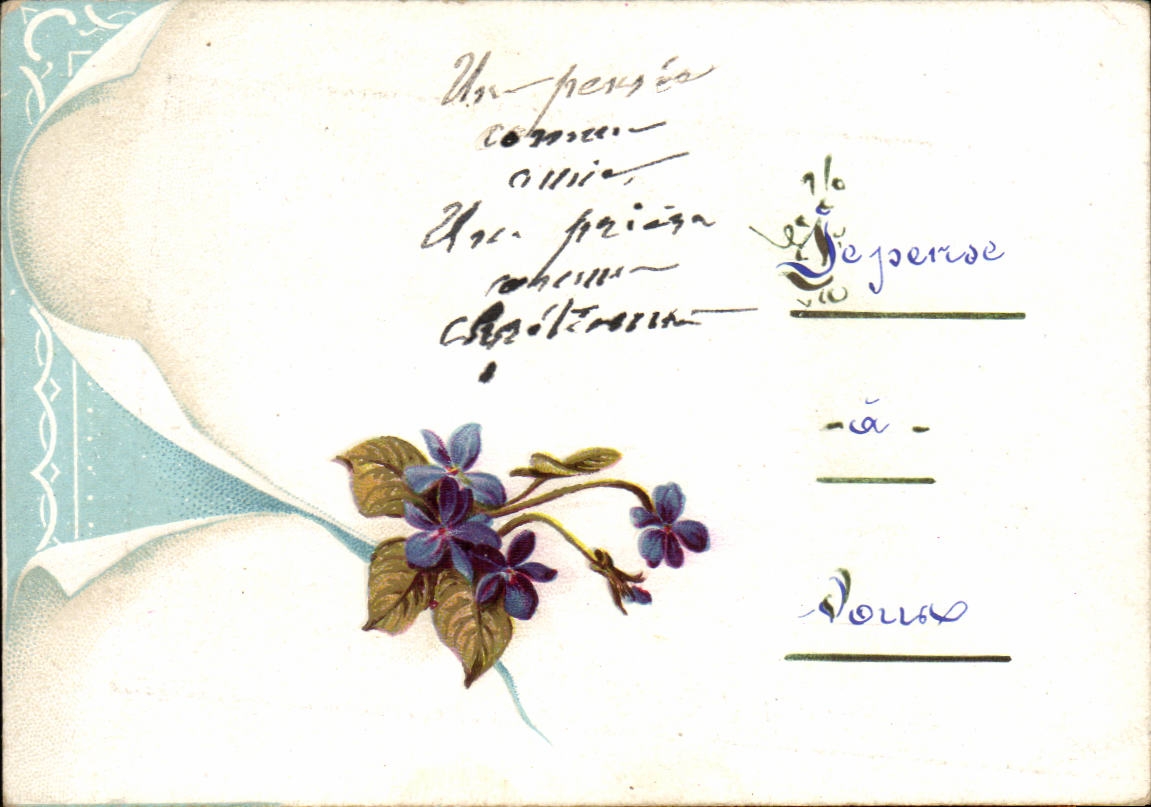 Une pensée
comme
amie,
Une prière
comme
chrétienne
Je pense
- à -
Vous